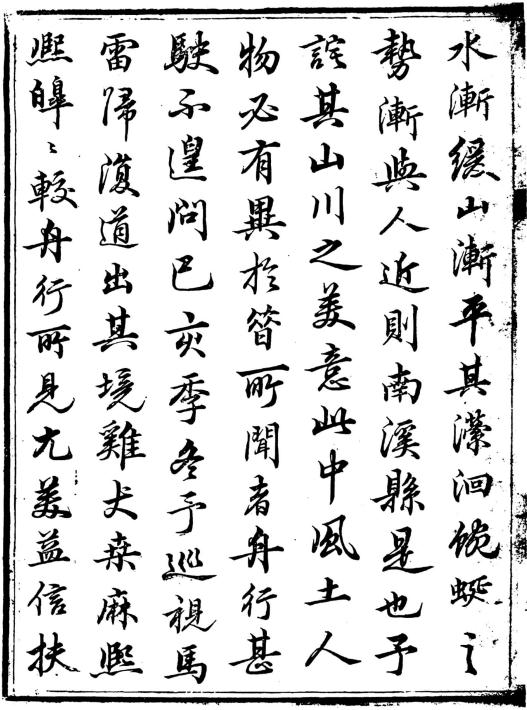 水漸緩山漸平其瀠洄蜿蜒之
勢漸與人近則南溪縣是也予
詫其山川之美意此中風土人
物必有異於曾所聞者舟行甚
駛不遑問巳亥季冬予巡視馬
雷歸復道出其境雞犬桑麻熙
熙皥〻較舟行所見尤美益信扶